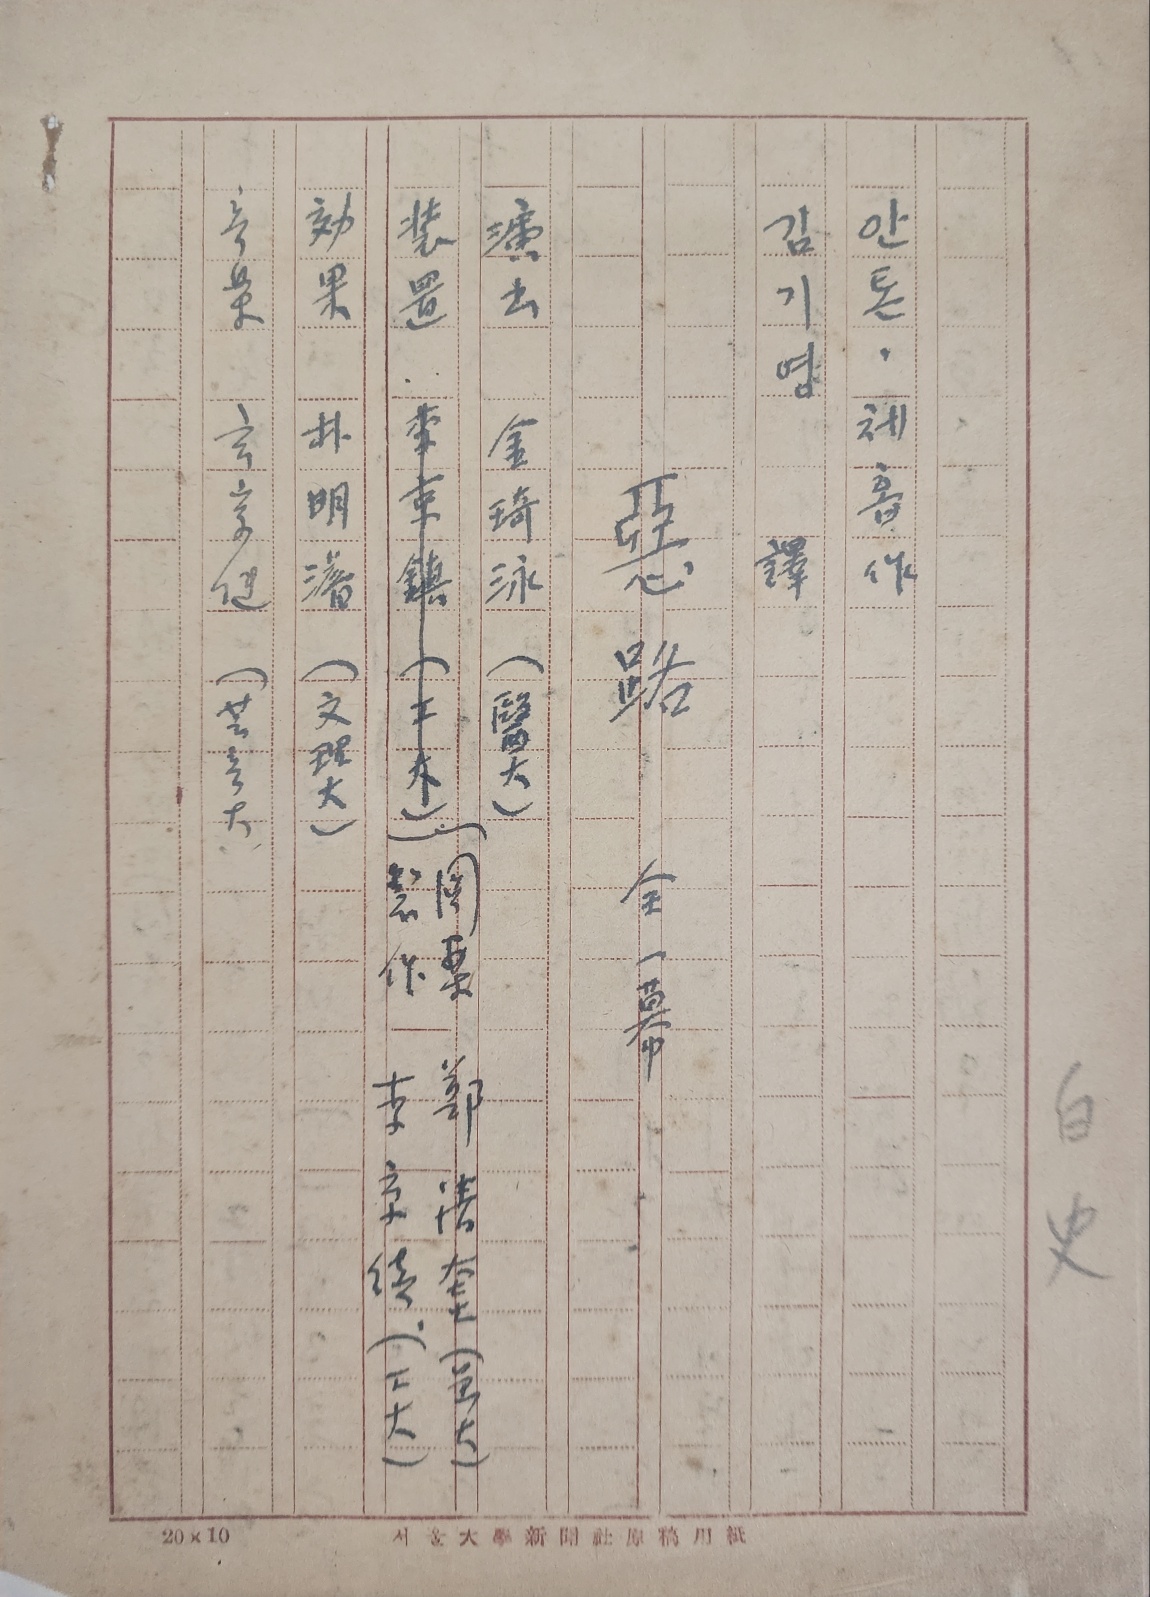 안톤·체홉作
김기영 譯
惡路 全一幕
演出 金琦泳 (醫大)
装置 李東鎮 (工大)
図案 鄭
製作 李 (工大)
効果 朴明濬 (文理大)
音楽 (芸音大)
白史
20×10
서울大學新聞社原稿用紙